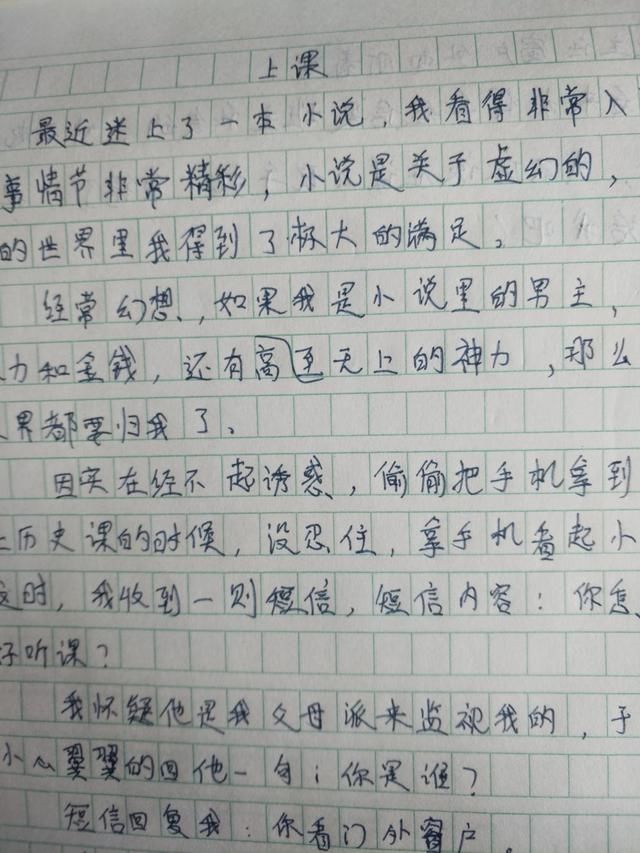 上课
最近迷上了一本小说，我看得非常入
事情节非常精彩，小说是关于虚幻的，
的世界里我得到了极大的满足。
经常幻想，如果我是小说里的男主，
力和金钱，还有高至无上的神力，那么
界都要归我了。
因实在经不起诱惑，偷偷把手机拿到
上历史课的时候，没忍住，拿手机看起小
这时，我收到一则短信，短信内容：你怎
好听课？
我怀疑他是我父母派来监视我的，于
小心翼翼的回他一句：你是谁？
短信回复我：你看门外窗户。